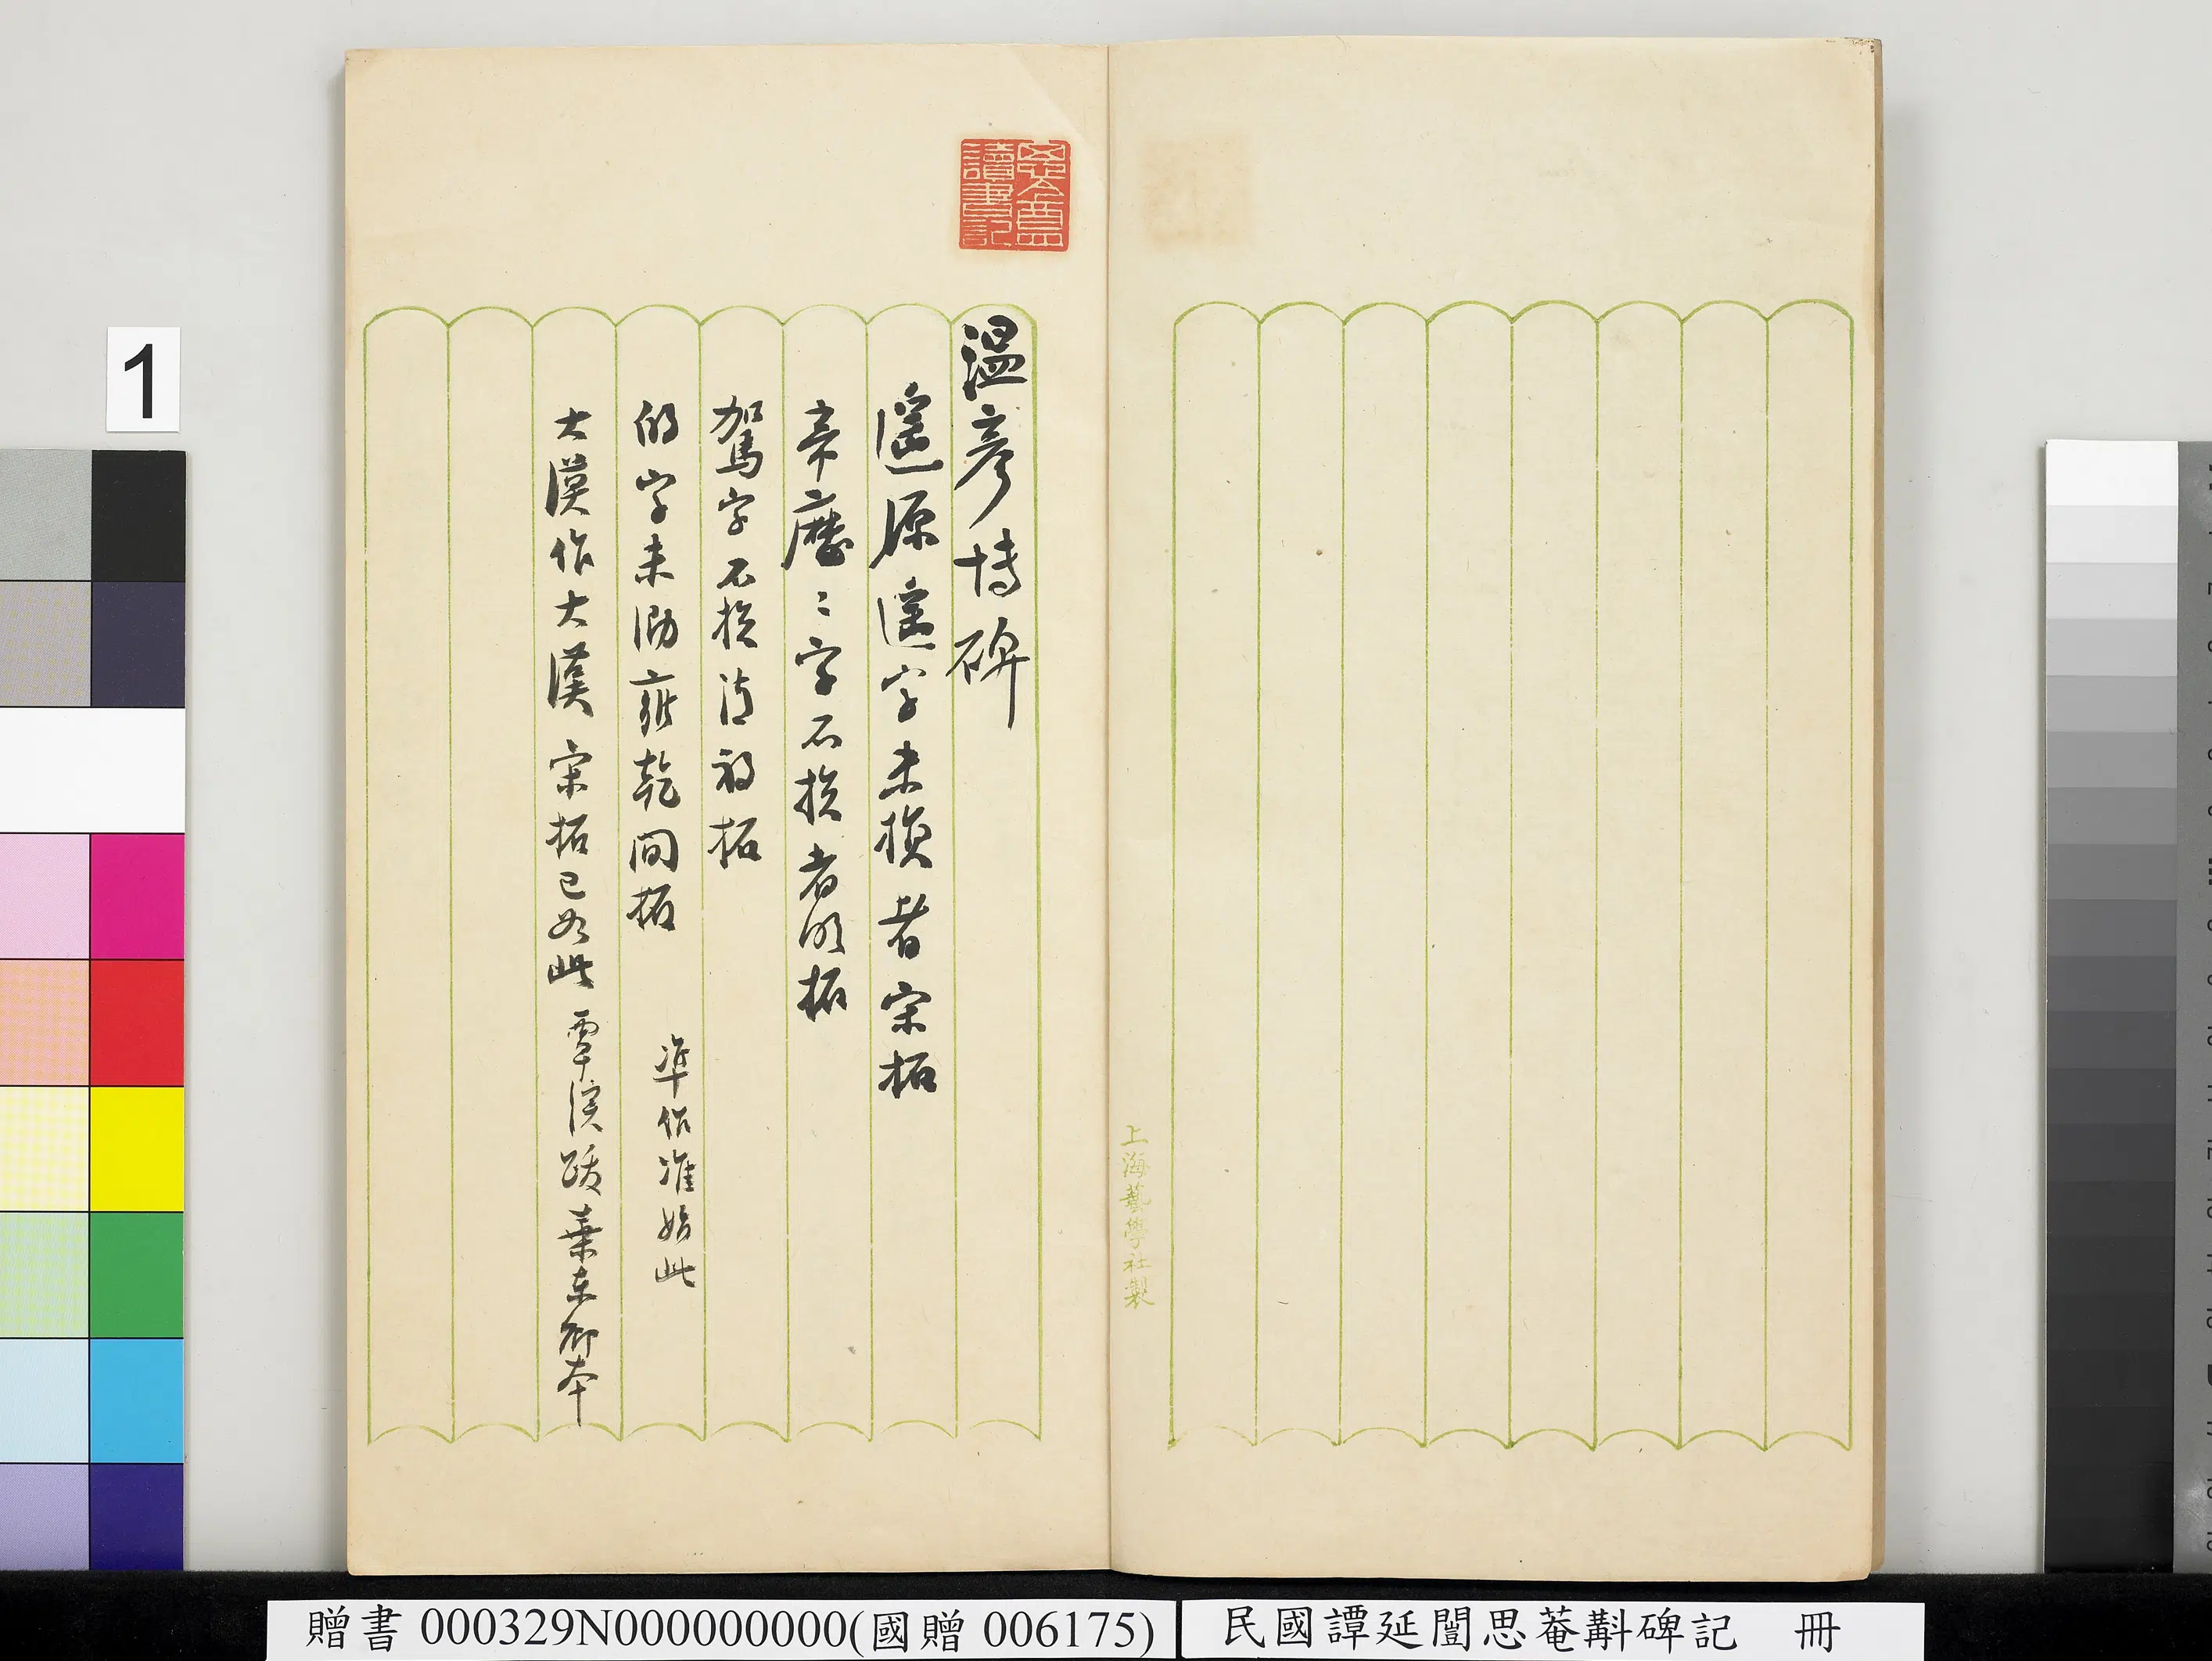 1
上海藝學社製
思盦讀書記
溫彥博碑
遙源遙字未損者宋拓
帝歷二字不損者明拓
駕字不損清初拓
的字未泐雍乾間拓 準作准始此
大漠作大漢 宋拓已如此 覃溪跋葉東卿本
贈書 000329N000000000(國贈 006175)
民國譚延闓思菴斠碑記 冊